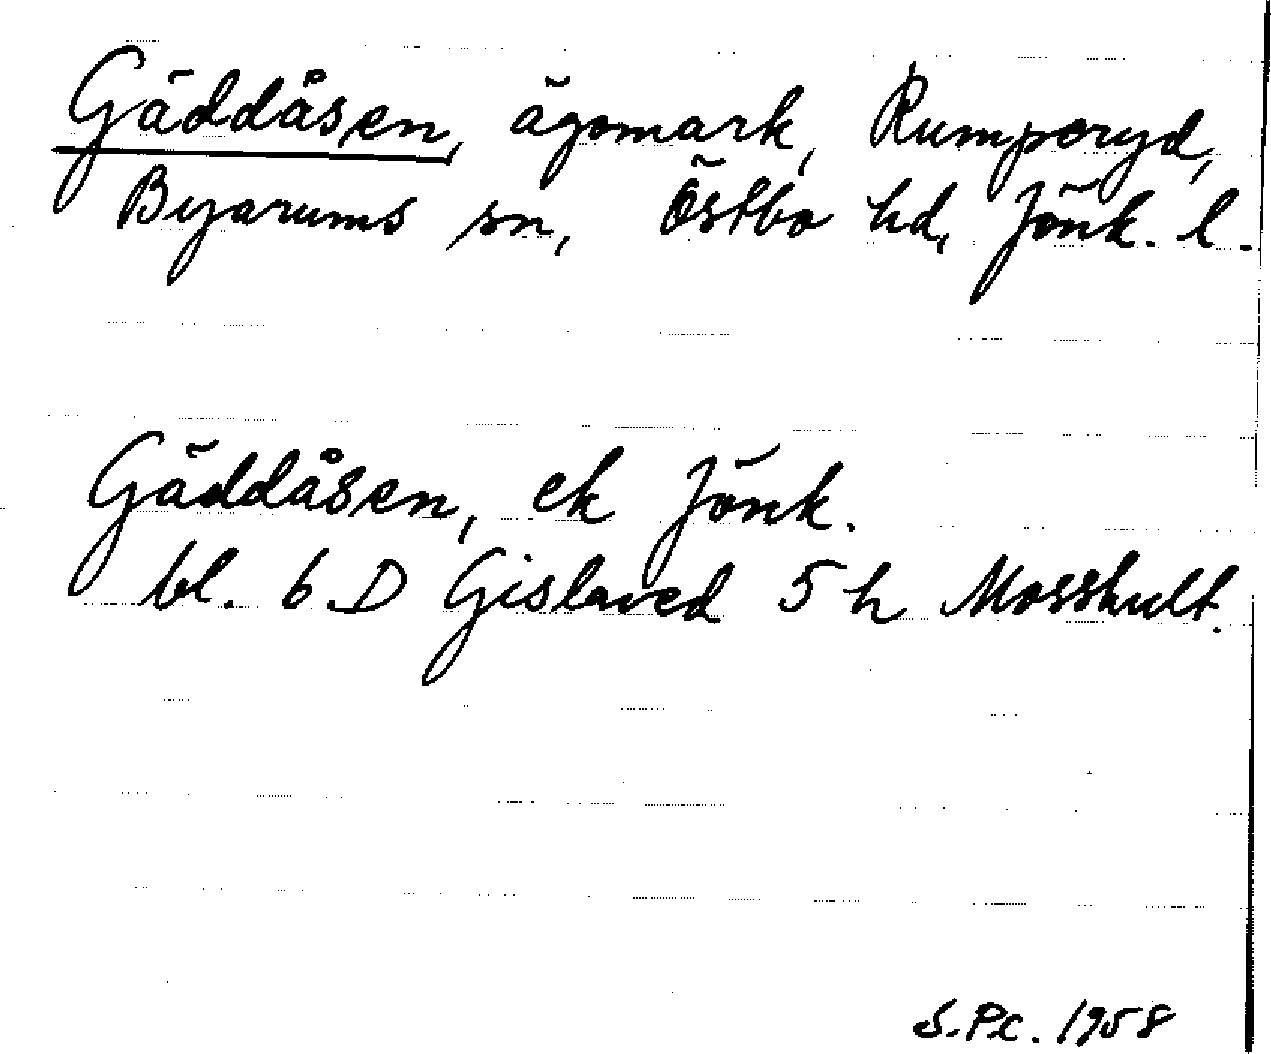 Gäddåsen, ägomark, Rumperyd,
Byarums sn, Östbo hd, Jönk. l.
Gäddåsen, ek Jönk.
bl. 6 D Gislaved 5 h Mosshult.
S.P.c. 1958